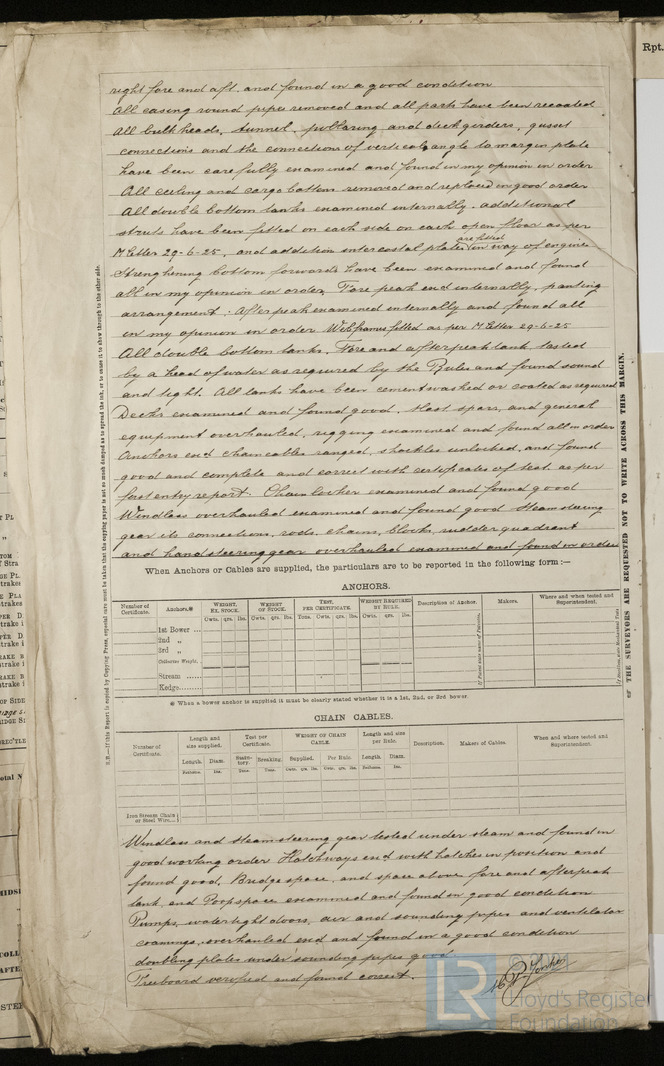 right fore and aft. and found in a good condition
All casing round pipes removed and all parts have been recoated
All bulkheads, tunnel, pillaring and deckgirders, gusset
connections and the connections of vertical angle to margin plate
have been carefully examined and found in my opinion in order
All ceiling and cargo battens removed and replaced in good order
All double bottom tanks examined internally. additional
struts have been fitted on each side on each open floor as per
M letter 29-6-25, and addition intercostal plates are fitted in way of engine
Strenghining bottom forwards have been examined and found
all in my opinion in order. Fore peak exd internally, panting
arrangement; Afterpeak examined internally and found all
in my opinion in order Webframes fitted as per M letter 29-6-25
All double bottom tanks, Fore and afterpeak tank tested
by a head of water as required by the Rules and found sound
and tight. All tanks have been cementwashed or coated as required
Decks examined and found good. Mast spars, and general
equipment overhauled, rigging examined and found all in order
Anchors exd chaincables ranged, shackles unlocked, and found
good and complete and correct with certificates of test as per
first entry report. Chainlocker examined and found good
Windlass overhauled examined and found good Steam steering
gear its connections, rods, chains, blocks, rudder quadrant
and handsteering gear overhauled examined and found in order
When Anchors or Cables are supplied, the particulars are to be reported in the following form:—
ANCHORS.
Number of Certificate. Anchors.* WEIGHT. EX. STOCK. WEIGHT OF STOCK. TEST, PER CERTIFICATE. WEIGHT REQUIRED BY RULE. Description of Anchor. Makers. Where and when tested and Superintendent.
Cwts. qrs. lbs. Cwts. qrs. lbs. Tons. Cwts. qrs. lbs. Cwts. qrs. lbs.
1st Bower ...
2nd „
3rd „
Collective Weight.
Stream ......
Kedge........
* When a bower anchor is supplied it must be clearly stated whether it is a 1st, 2nd, or 3rd bower.
CHAIN CABLES.
Number of Certificate. Length and size supplied. Test per Certificate. WEIGHT OF CHAIN CABLE. Length and size per Rule. Description. Makers of Cables. When and where tested and Superintendent.
Length. Diam. Statutory. Breaking. Supplied. Per Rule. Length. Diam.
Fathoms. Ins. Tons. Tons. Cwts. qrs. lbs. Cwts. qrs. lbs. Fathoms. Ins.
Iron Stream Chain or Steel Wire...
Windlass and Steamsteering gear tested under steam and found in
good working order Hatchways exd with hatches in position and
found good. Bridge space, and space above fore and afterpeak
tank, and Poopspace examined and found in good condition
Pumps, watertight doors, air and sounding pipes and ventilator
coamings, overhauled exd and found in a good condition
doubling plates under sounding pipes good
Freeboard verified and found correct.
N.B.—If this Report is copied by Copying Press, especial care must be taken that the copying paper is not so much damped as to spread the ink, or to cause it to shew through to the other side.
THE SURVEYORS ARE REQUESTED NOT TO WRITE ACROSS THIS MARGIN.
Rpt.
LR
Lloyd's Register
Foundation